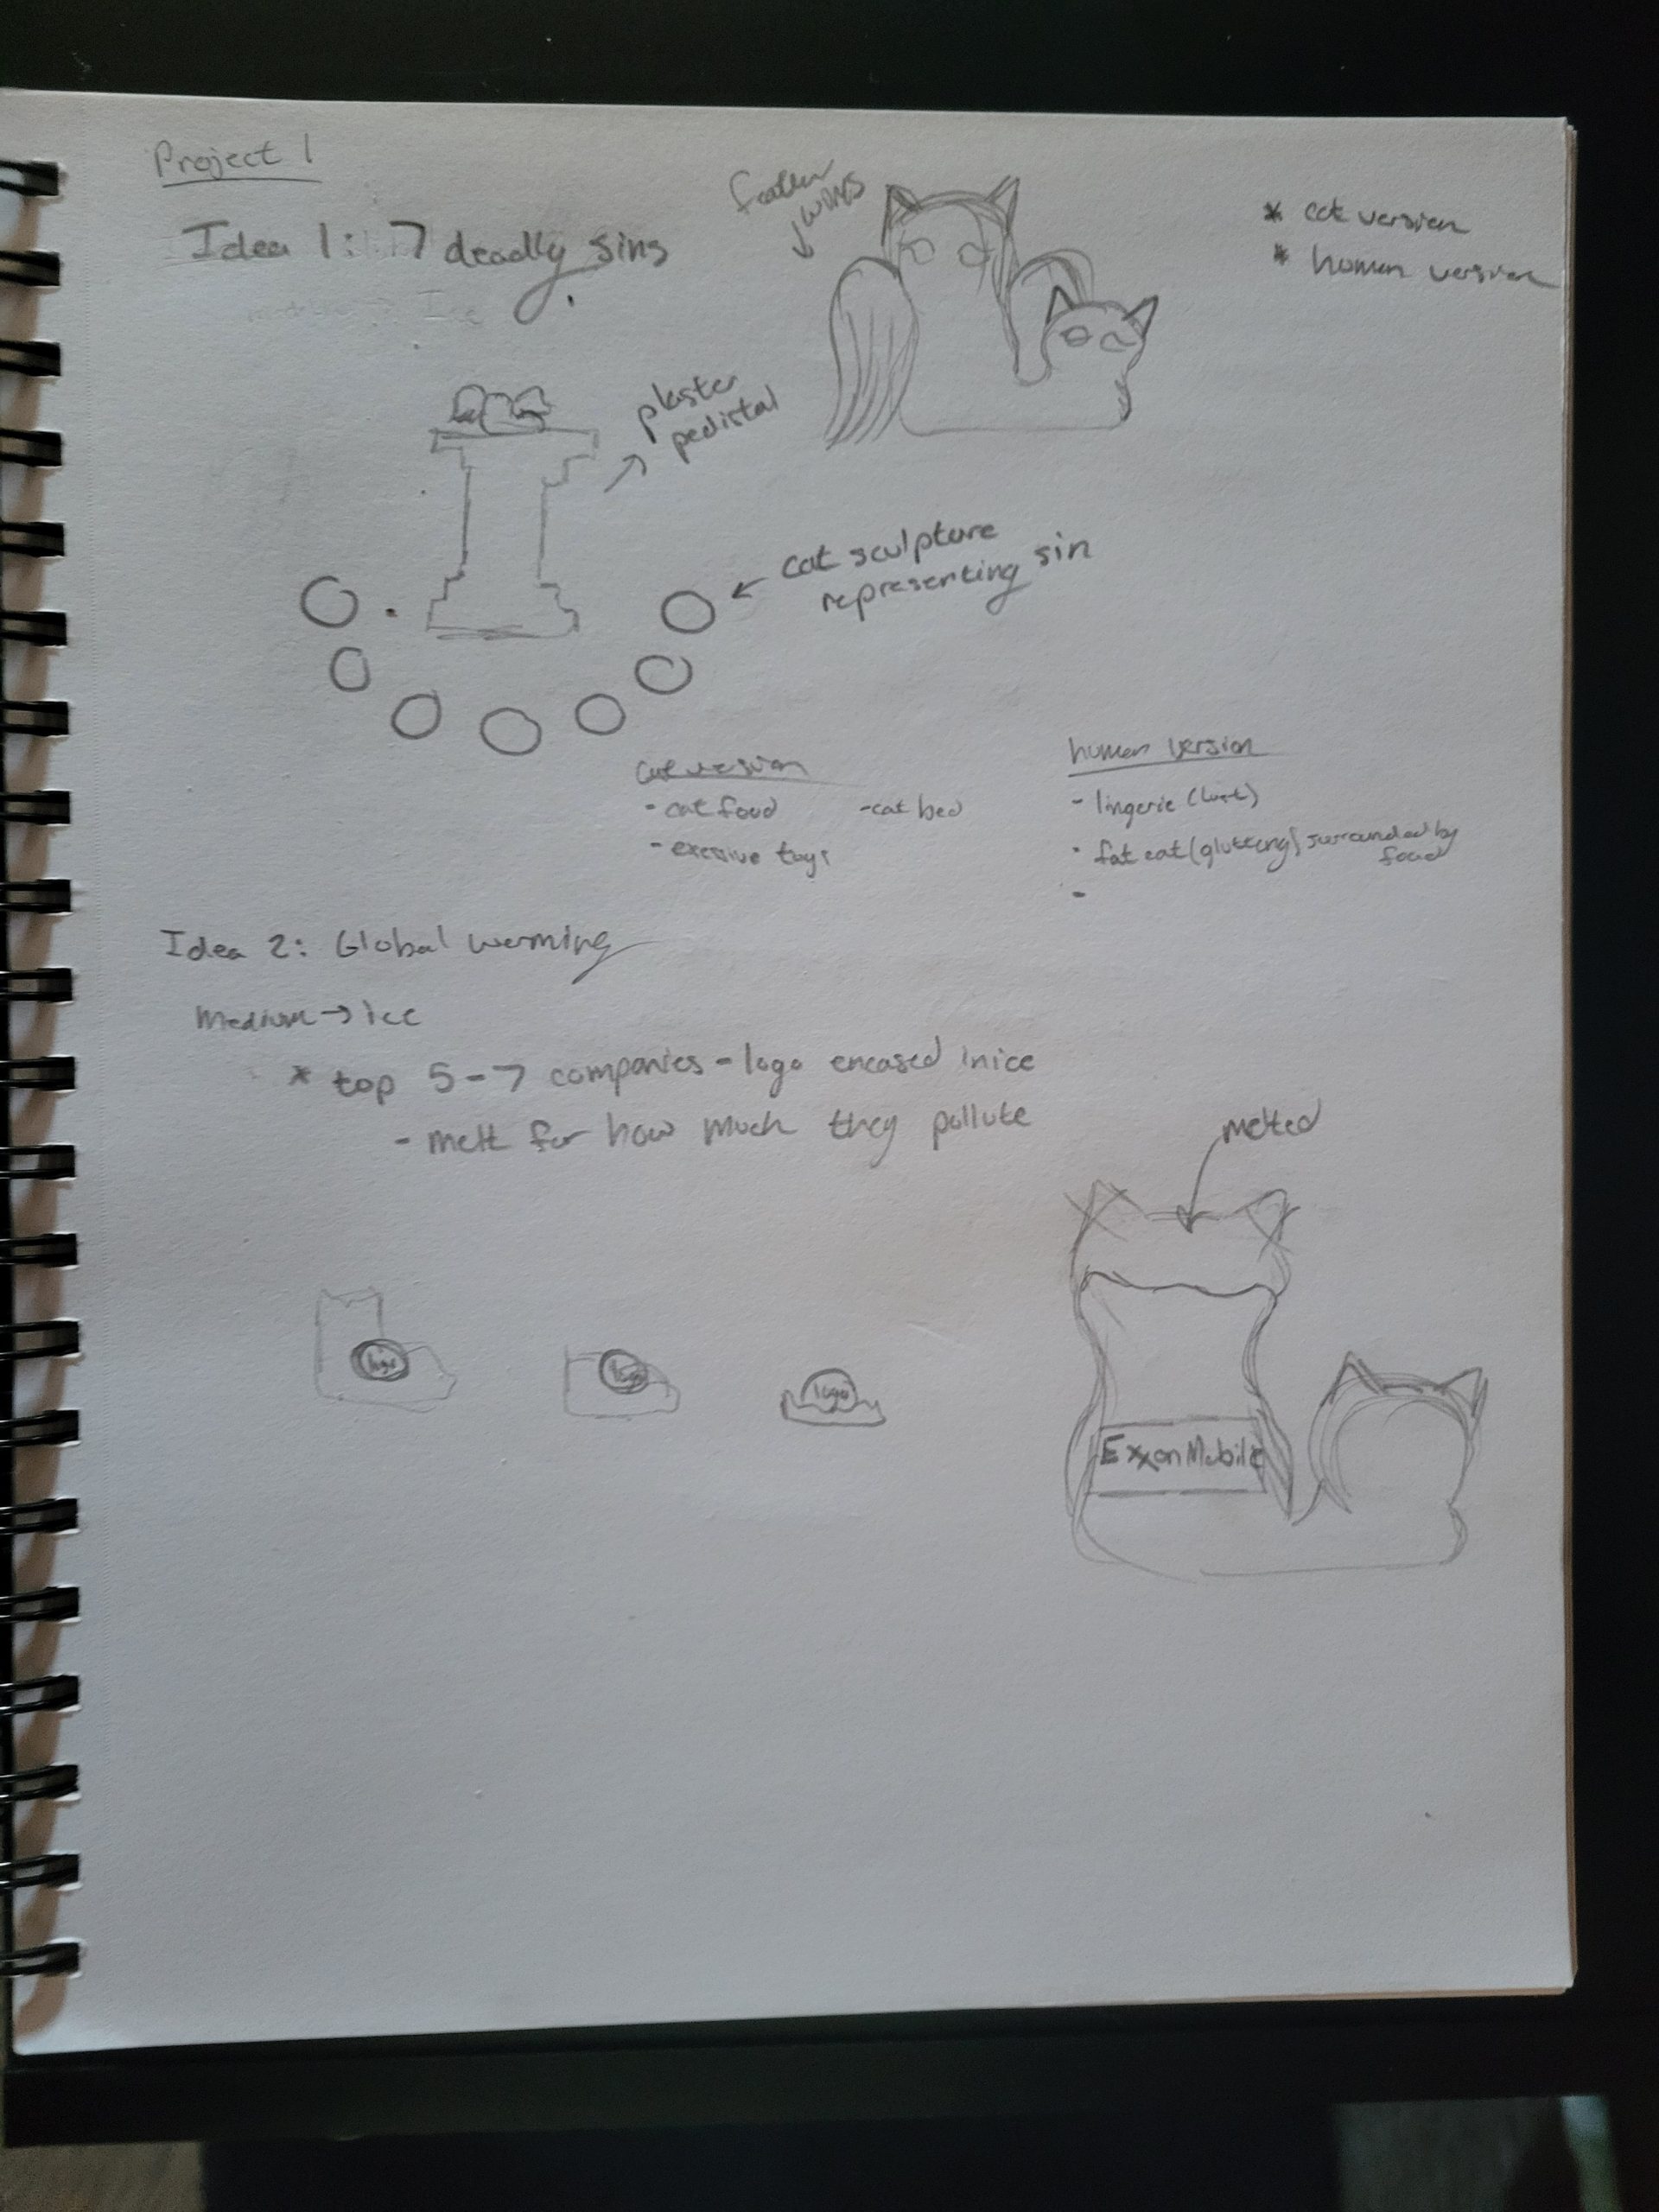 Project 1
Idea 1: 7 deadly sins
feather
wings
* cat version
* human version
plaster
pedistal
cat sculpture
representing sin
cat version
- cat food
- cat bed
- exessive toys
human version
- lingerie (lust)
- fat cat (gluttony) surrounded by
food
-
Idea 2: Global warming
Medium → ice
* top 5-7 companies - logo encased in ice
- melt for how much they pollute
melted
logo
logo
logo
ExxonMobile